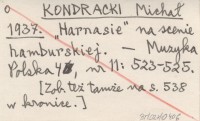 o KONDRACKI Michał
1937. "Harnasie" na scenie
hamburskiej. — Muzyka
Polska 4, nr 11: 523-525.
[Zob. też tamże na s. 538
w kronice.]